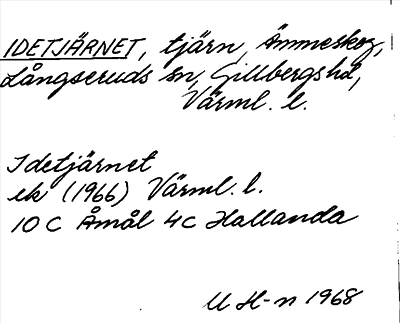 IDETJÄRNET, tjärn, Ämmeskog,
Långseruds sn, Gillbergs hd,
Värml. l.
Idetjärnet
ek (1966) Värml. l.
10 C Åmål 4C Hallanda
U H-n 1968